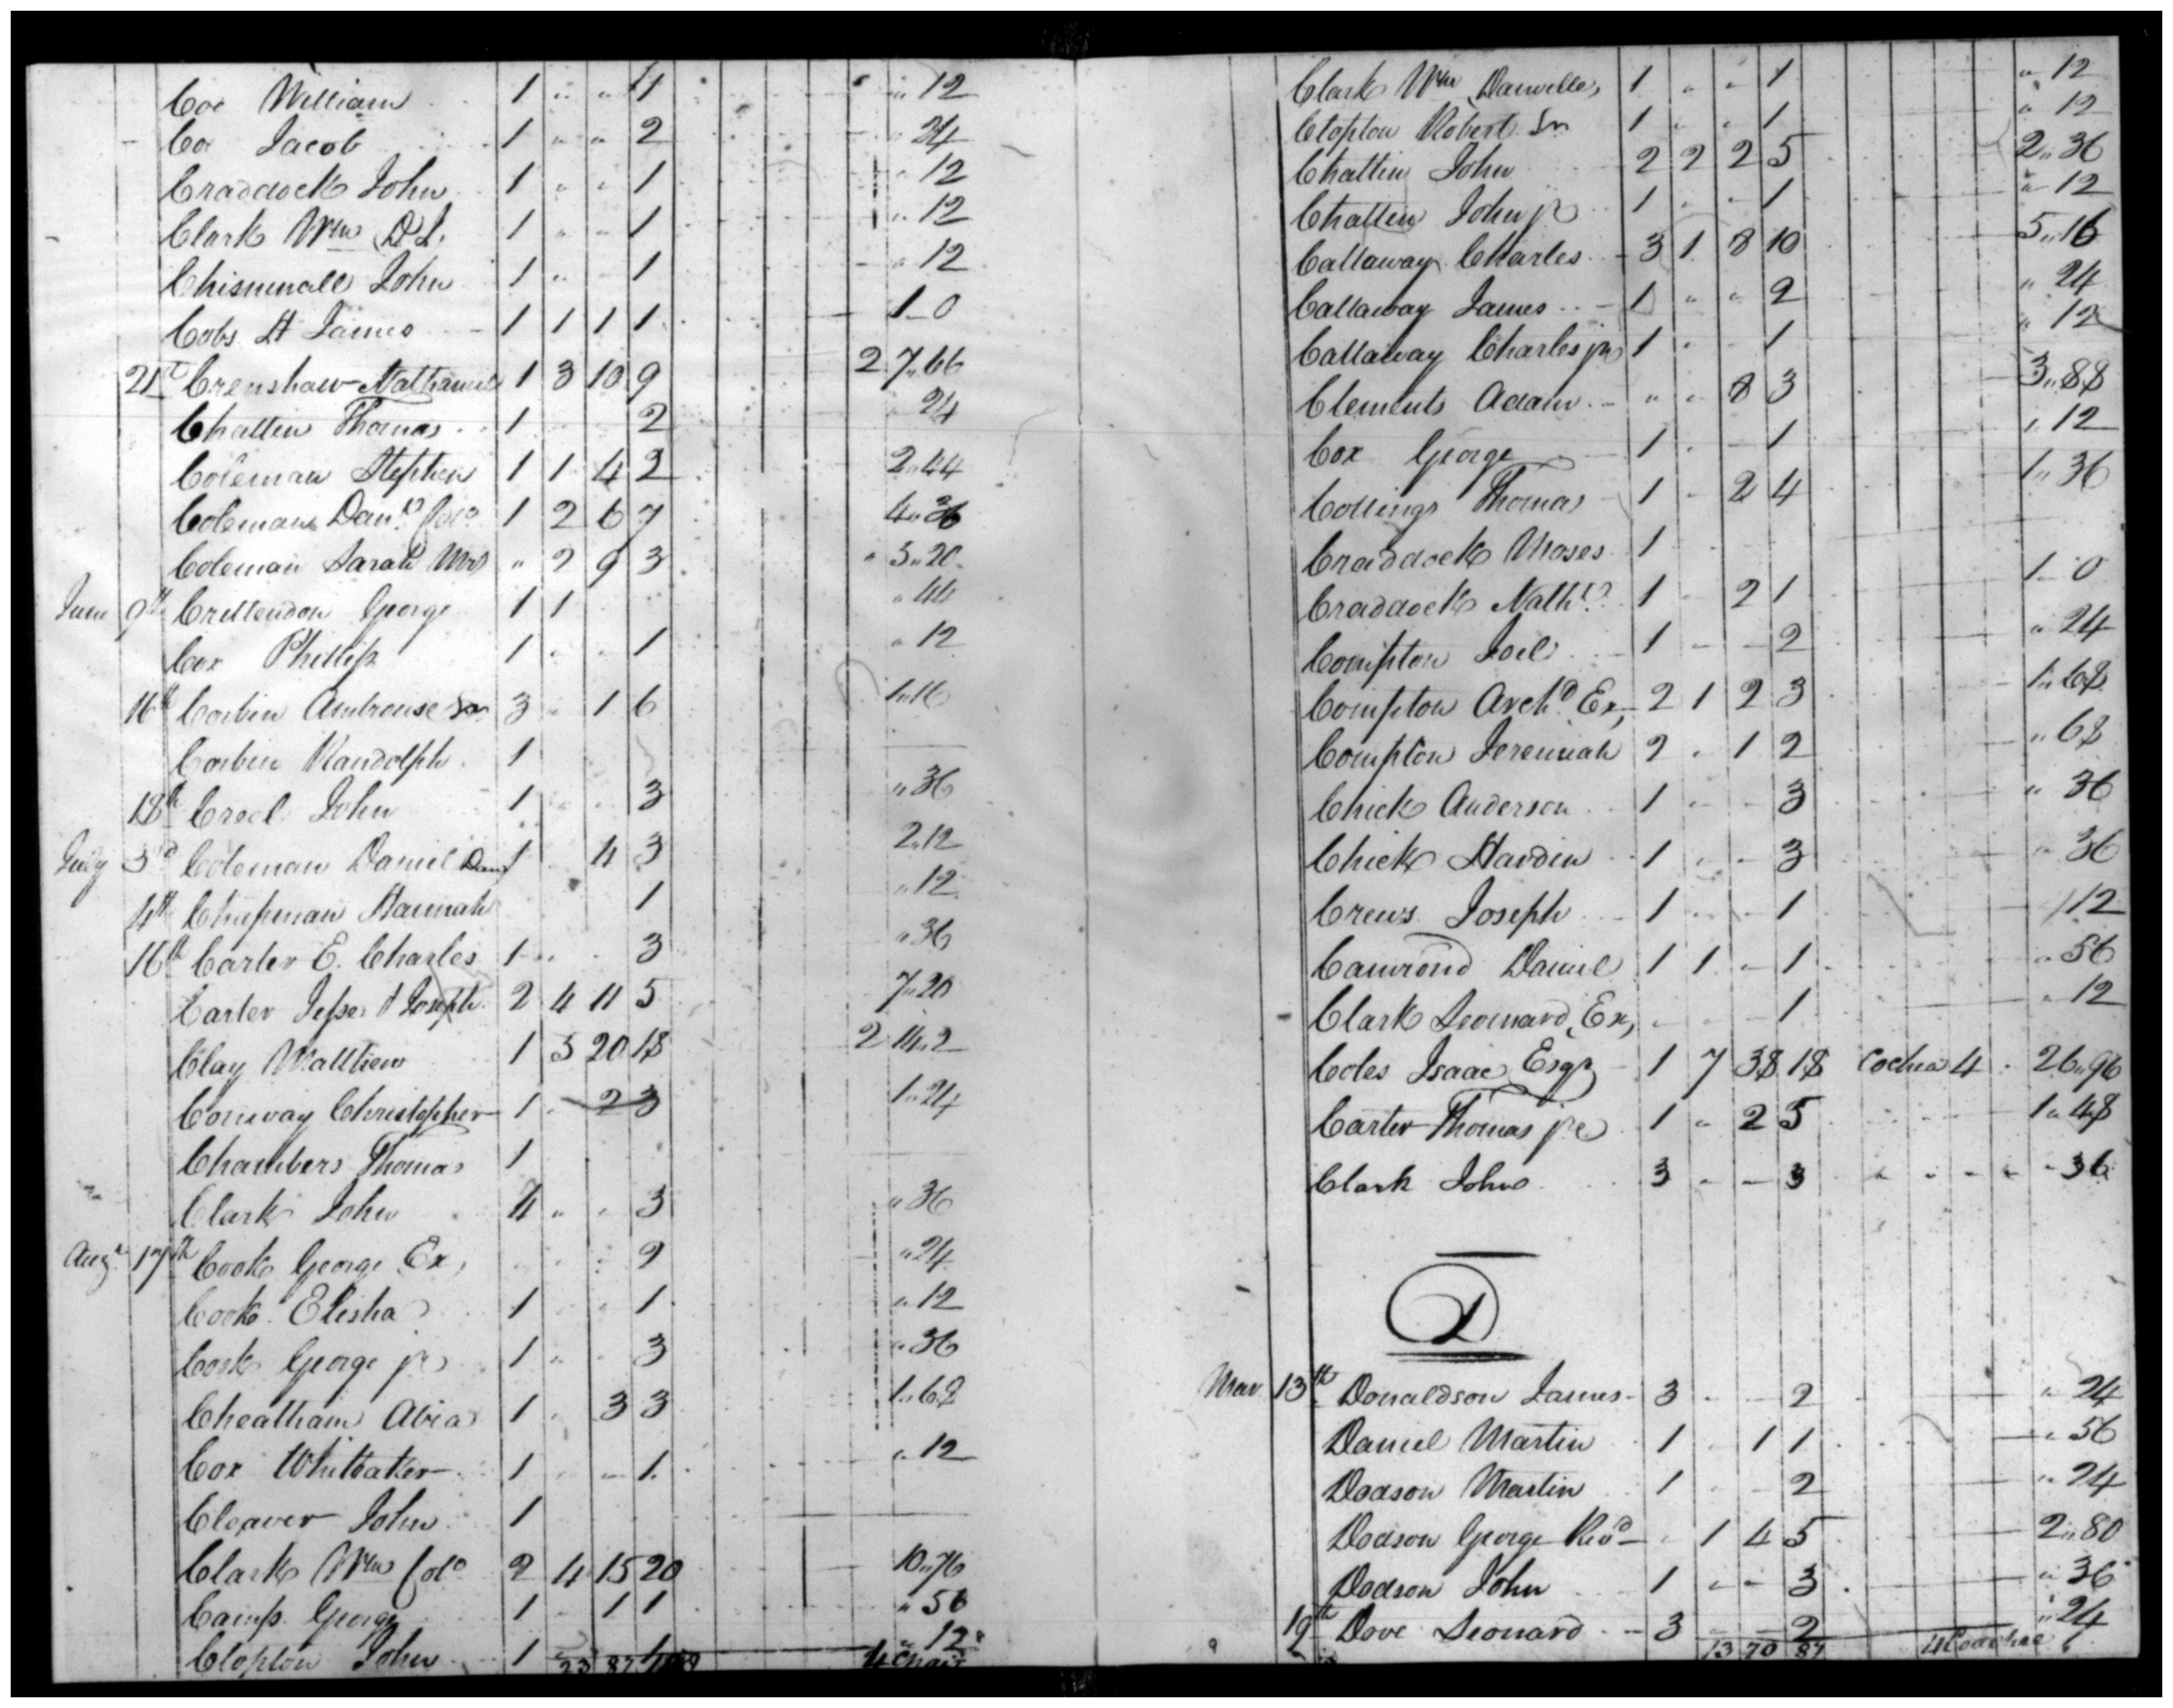 Cox William 1 " " 1 " 12
Cox Jacob 1 " " 2 " 24
Craddock John 1 " " 1 " 12
Clark Wm D.S. 1 " - 1 " 12
Chisumall John 1 " - 1 " 12
Cobs St James 1 1 1 1 1 - 0
21st Crenshaw Nathaniel 1 3 10 9 2 7 " 66
Chattin Thomas 1 2 " 24
Coleman Stephen 1 1 4 2 2 " 44
Coleman Danl Colo 1 2 6 7 4 " 36
Coleman Sarah Mrs " 2 9 3 " 5 " 20
June 9th Crittendon George 1 1 " 44
Cox Phillip 1 " " 1 " 12
16th Corbin Ambrouse Snr 3 " 1 6 1 " 16
Corbin Randolph 1
18th Creel John 1 " " 3 " 36
July 3d Coleman Daniel Dan 1 4 3 2 " 12
4th Chapman Hannah 1 " 12
16th Carter E. Charles 1 " " 3 " 36
Carter Jesse & Joseph 2 4 11 5 7 " 20
Clay Matthew 1 3 20 18 2 14 " 2
Conway Christopher 1 - 2 3 1 " 24
Chambers Thomas 1
Clark John 4 " " 3 " 36
Augt 17th Cook George Ex, 2 " 24
Cook Elisha 1 " " 1 " 12
Cook George jr 1 " " 3 " 36
Cheatham Abia 1 " 3 3 1 " 68
Cox Whiteaker 1 " - 1 " 12
Cleaver John 1
Clark Wm Colo 2 4 15 20 10 " 76
Camp George 1 - 1 1 " 56
Clopton John 1 1 " 12
23 87 4 Chair
Clark Wm Danville, 1 " - 1 " 12
Clopton Robert Sn 1 " " 1 " 12
Chattin John 2 2 2 5 2 " 36
Chattin John jr 1 - - 1 " 12
Callaway Charles 3 1 8 10 5 " 16
Callaway James 1 " " 2 " 24
Callaway Charles jr 1 " - 1 " 12
Clements Adam " - 8 3 3 " 88
Cox George 1 " - 1 " 12
Collings Thomas 1 - 2 4 1 " 36
Craddock Moses 1
Craddock Nathl 1 - 2 1 1 - 0
Compton Joel 1 - - 2 " 24
Compton Archd Ex, 2 1 2 3 1 " 68
Compton Jeremiah 2 " 1 2 " 68
Chick Anderson 1 - - 3 " 36
Chick Hardin 1 " - 3 " 36
Crews Joseph 1 " - 1 12
Camrond Daniel 1 1 - 1 " 56
Clark Leonard, Ex, - - - 1 " 12
Coles Isaac Esqr 1 7 38 18 Cochea 4 26 " 96
Carter Thomas jr 1 " 2 5 1 " 48
Clark John 3 - - 3 - 36
D
Mar 13th Donaldson James 3 - - 2 " 24
Daniel Martin 1 - 1 1 " 56
Dodson Martin 1 - - 2 " 24
Dodson George Revd - 1 4 5 2 " 80
Dodson John 1 - - 3 " 36
19th Dove Leonard 3 - - 2 " 24
13 70 87 4 Coachae